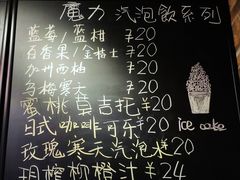 魔力 汽泡飲系列
蓝莓/蓝柑 ¥20
百香果/金桔士 ¥20
加州西柚 ¥20
乌梅寒天 ¥20
蜜桃莫吉托 ¥20
日式咖啡可乐 ¥20 ice cake
玫瑰寒天汽泡 ¥20
現榨柳橙汁 ¥24